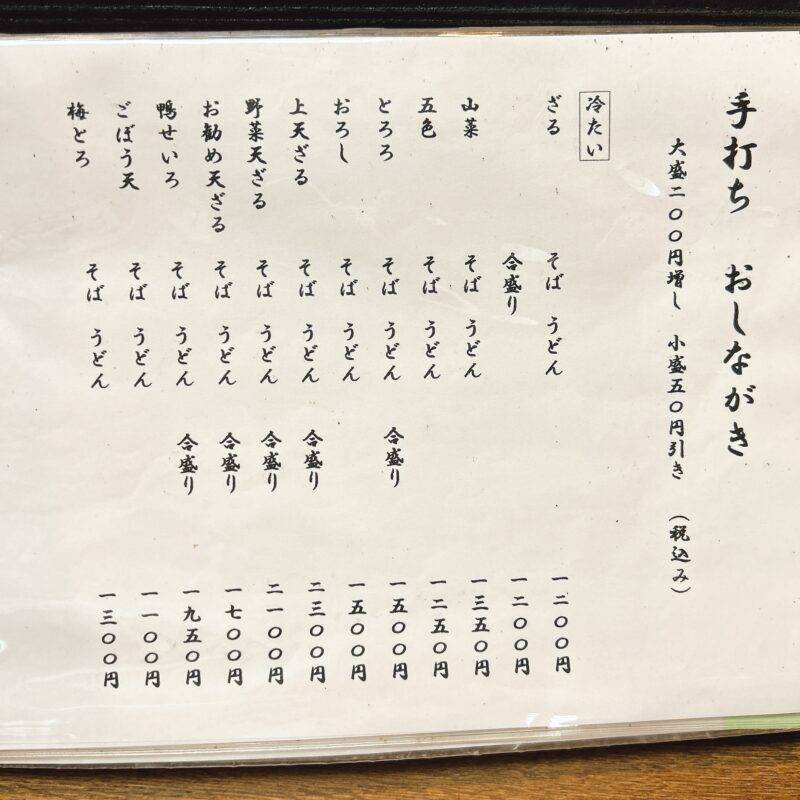 手打ち　おしながき
大盛二〇〇円増し　小盛五〇円引き　（税込み）
冷たい
ざる　そば　うどん　一二〇〇円
合盛り　一二〇〇円
山菜　そば　うどん　一三五〇円
五色　そば　うどん　一二五〇円
とろろ　そば　うどん　合盛り　一五〇〇円
おろし　そば　うどん　一五〇〇円
上天ざる　そば　うどん　合盛り　二三〇〇円
野菜天ざる　そば　うどん　合盛り　二一〇〇円
お勧め天ざる　そば　うどん　合盛り　一七〇〇円
鴨せいろ　そば　うどん　合盛り　一九五〇円
ごぼう天　そば　うどん　一一〇〇円
梅とろ　そば　うどん　一三〇〇円